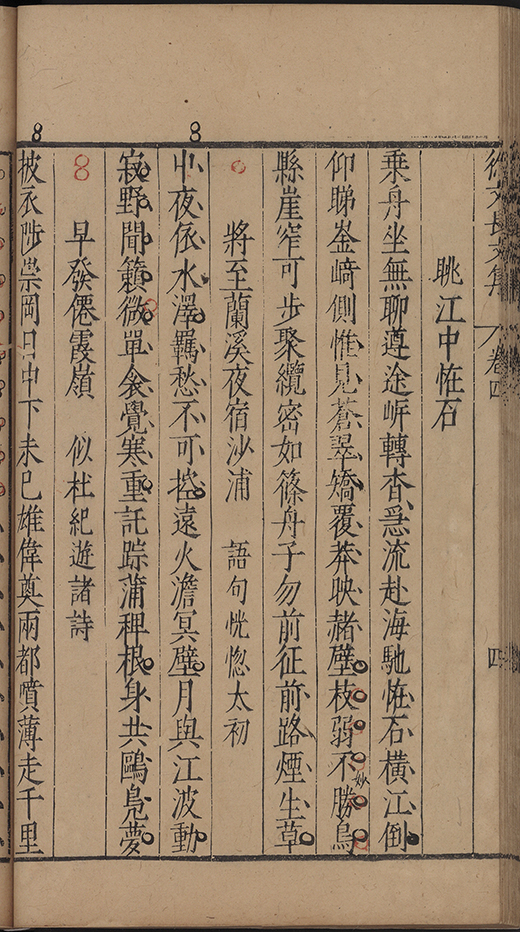 徐文長文集 卷四 四
眺江中恠石
乗舟坐無聊遵途㟁轉杳急流赴海馳恠石橫江倒
仰睇崟﨑側惟見蒼翠矯覆莽映赭壁枝弱不勝鳥
妙
縣崖窄可步聚纜密如篠舟子勿前征前路煙生草
將至蘭溪夜宿沙浦 語句恍惚太初
中夜依水澤羈愁不可控遠火澹冥壁月與江波動
寂野聞籟微單衾覺寒重託踪蒲稗根身共鷗鳧夢
早發僊霞嶺 似杜紀遊諸詩
披衣陟崇岡日中下未已雄偉奠兩都噴薄走千里